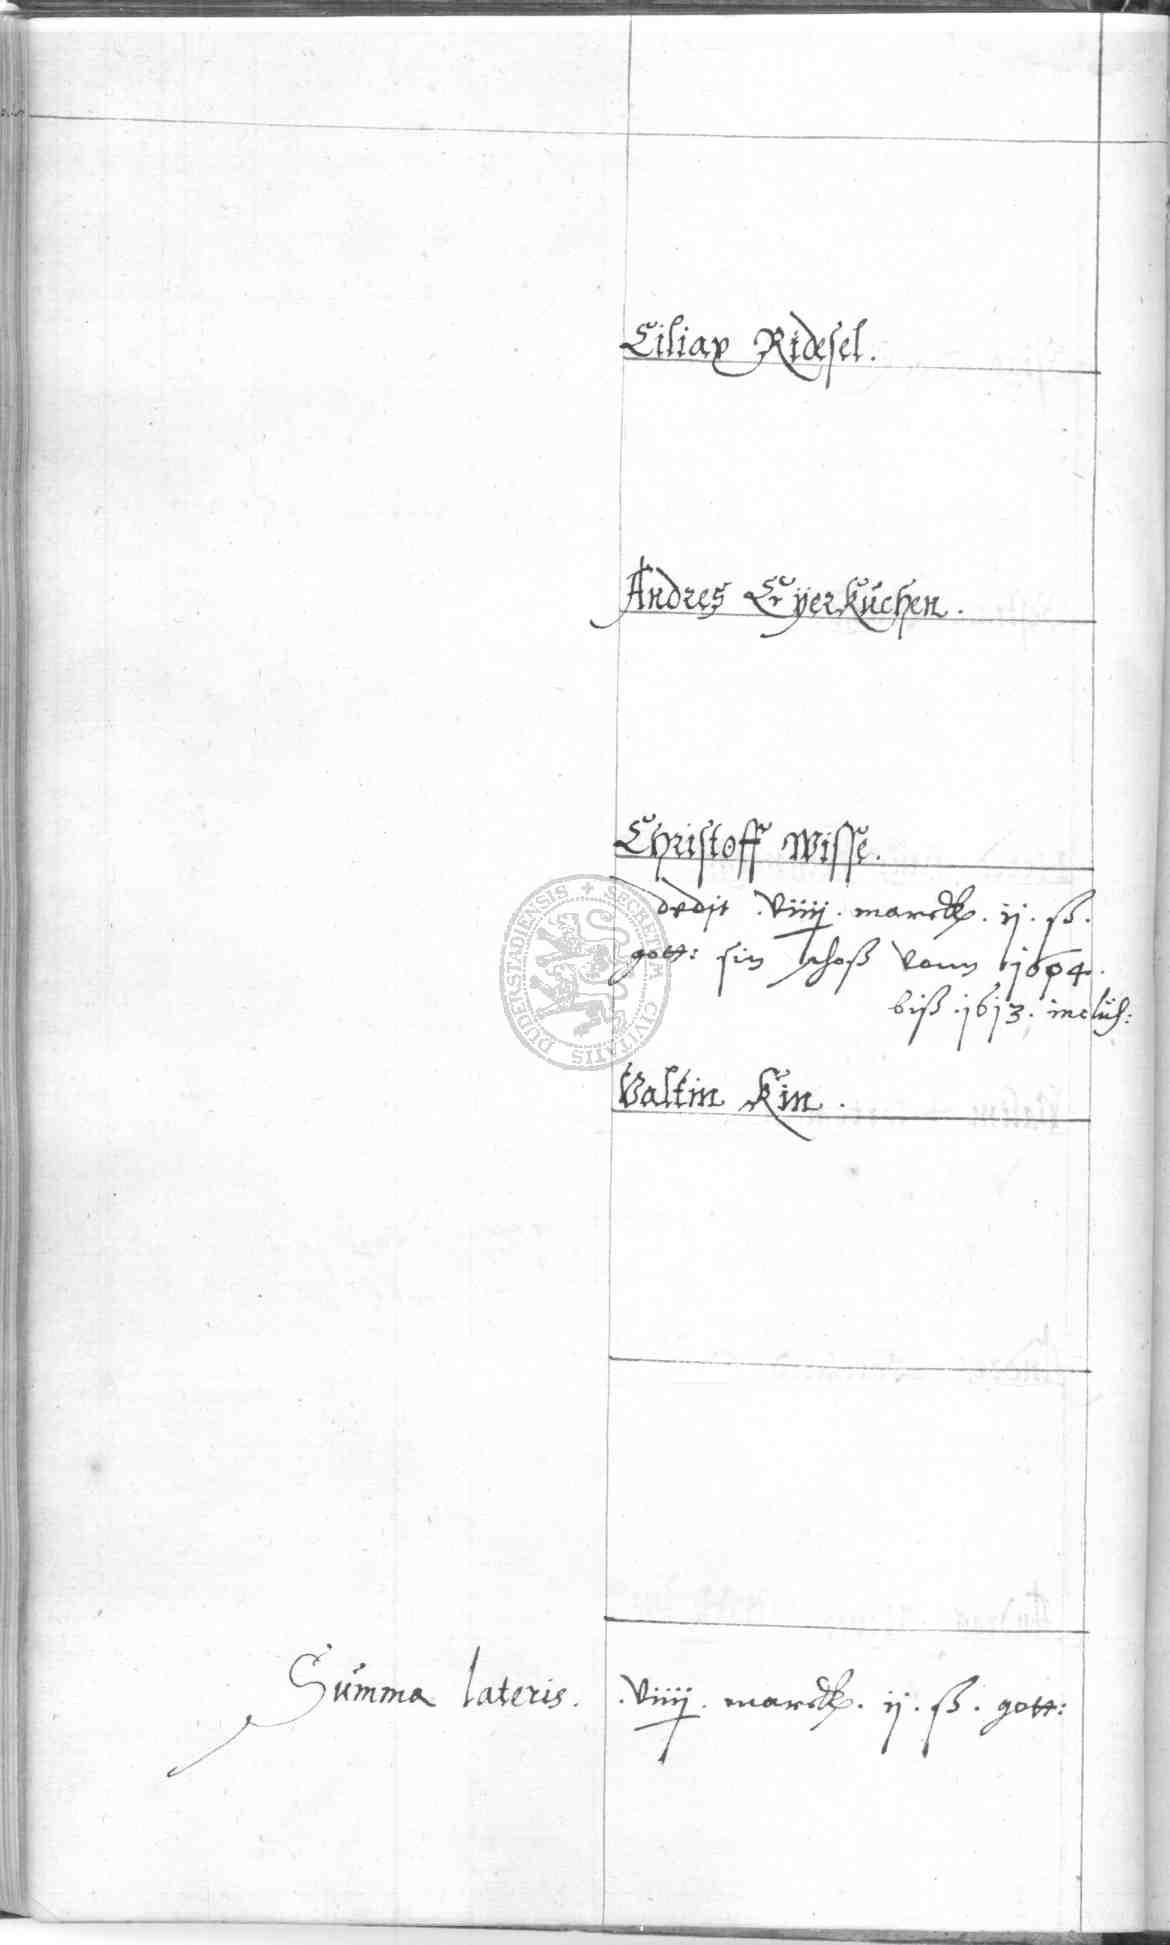 Ciliax Ridesel.
Andres Eyerkuchen.
Christoff Wisse.
dedit .viiij. marck. ij. ß.
gott: sin schoß vonn 1604.
biß .1613. inclus:
Valtin Kin.
Summa lateris. .viiij. marck. ij. ß. gott:
SECRETUM CIVITATIS DUDERSTADIENSIS